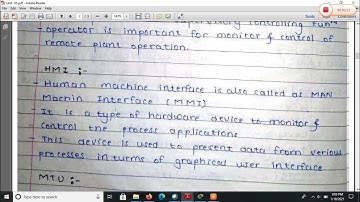 Unit- 05.pdf - Adobe Reader
- operator is important for monitor & control of
remote plant operation.
HMI :-
- Human machine interface is also called as MAN
Machin Interface (MMI)
- It is a type of hardware device to monitor &
control the process applications
- This device is used to present data from verious
processes in turms of graphical user interface.
MTU :-
Type here to search